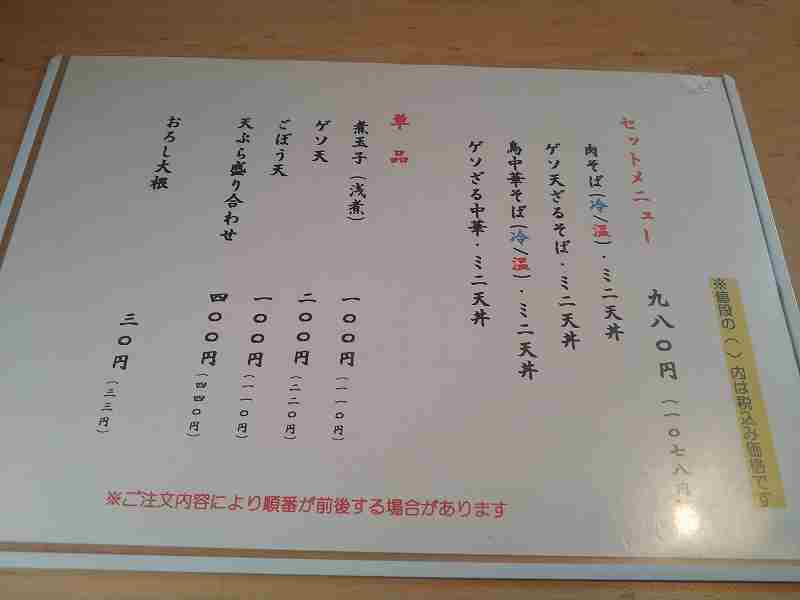 ※値段の（ ）内は税込み価格です
セットメニュー 九八〇円（一〇七八円
肉そば（冷/温）・ミニ天丼
ゲソ天ざるそば・ミニ天丼
鳥中華そば（冷/温）・ミニ天丼
ゲソざる中華・ミニ天丼
単品
煮玉子（浅煮） 一〇〇円（一一〇円）
ゲソ天 二〇〇円（二二〇円）
ごぼう天 一〇〇円（一一〇円）
天ぷら盛り合わせ 四〇〇円（四四〇円）
おろし大根 三〇円（三三円）
※ご注文内容により順番が前後する場合があります